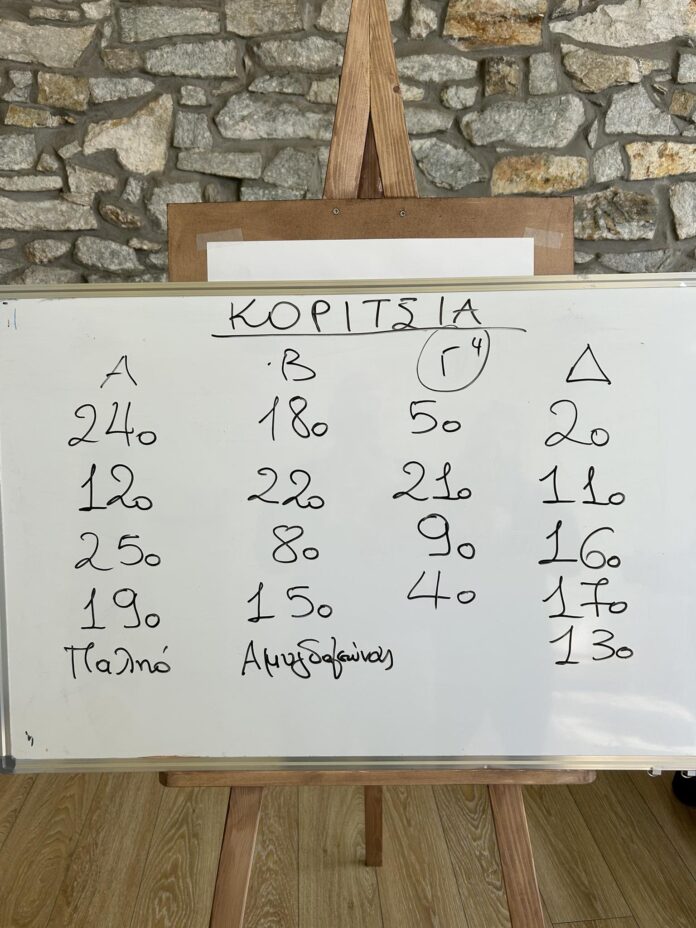 ΚΟΡΙΤΣΙΑ
Α Β Γ⁴ Δ
24ο 18ο 5ο 2ο
12ο 22ο 21ο 11ο
25ο 8ο 9ο 16ο
19ο 15ο 4ο 17ο
Παληό Αμυγδαλεώνας 13ο